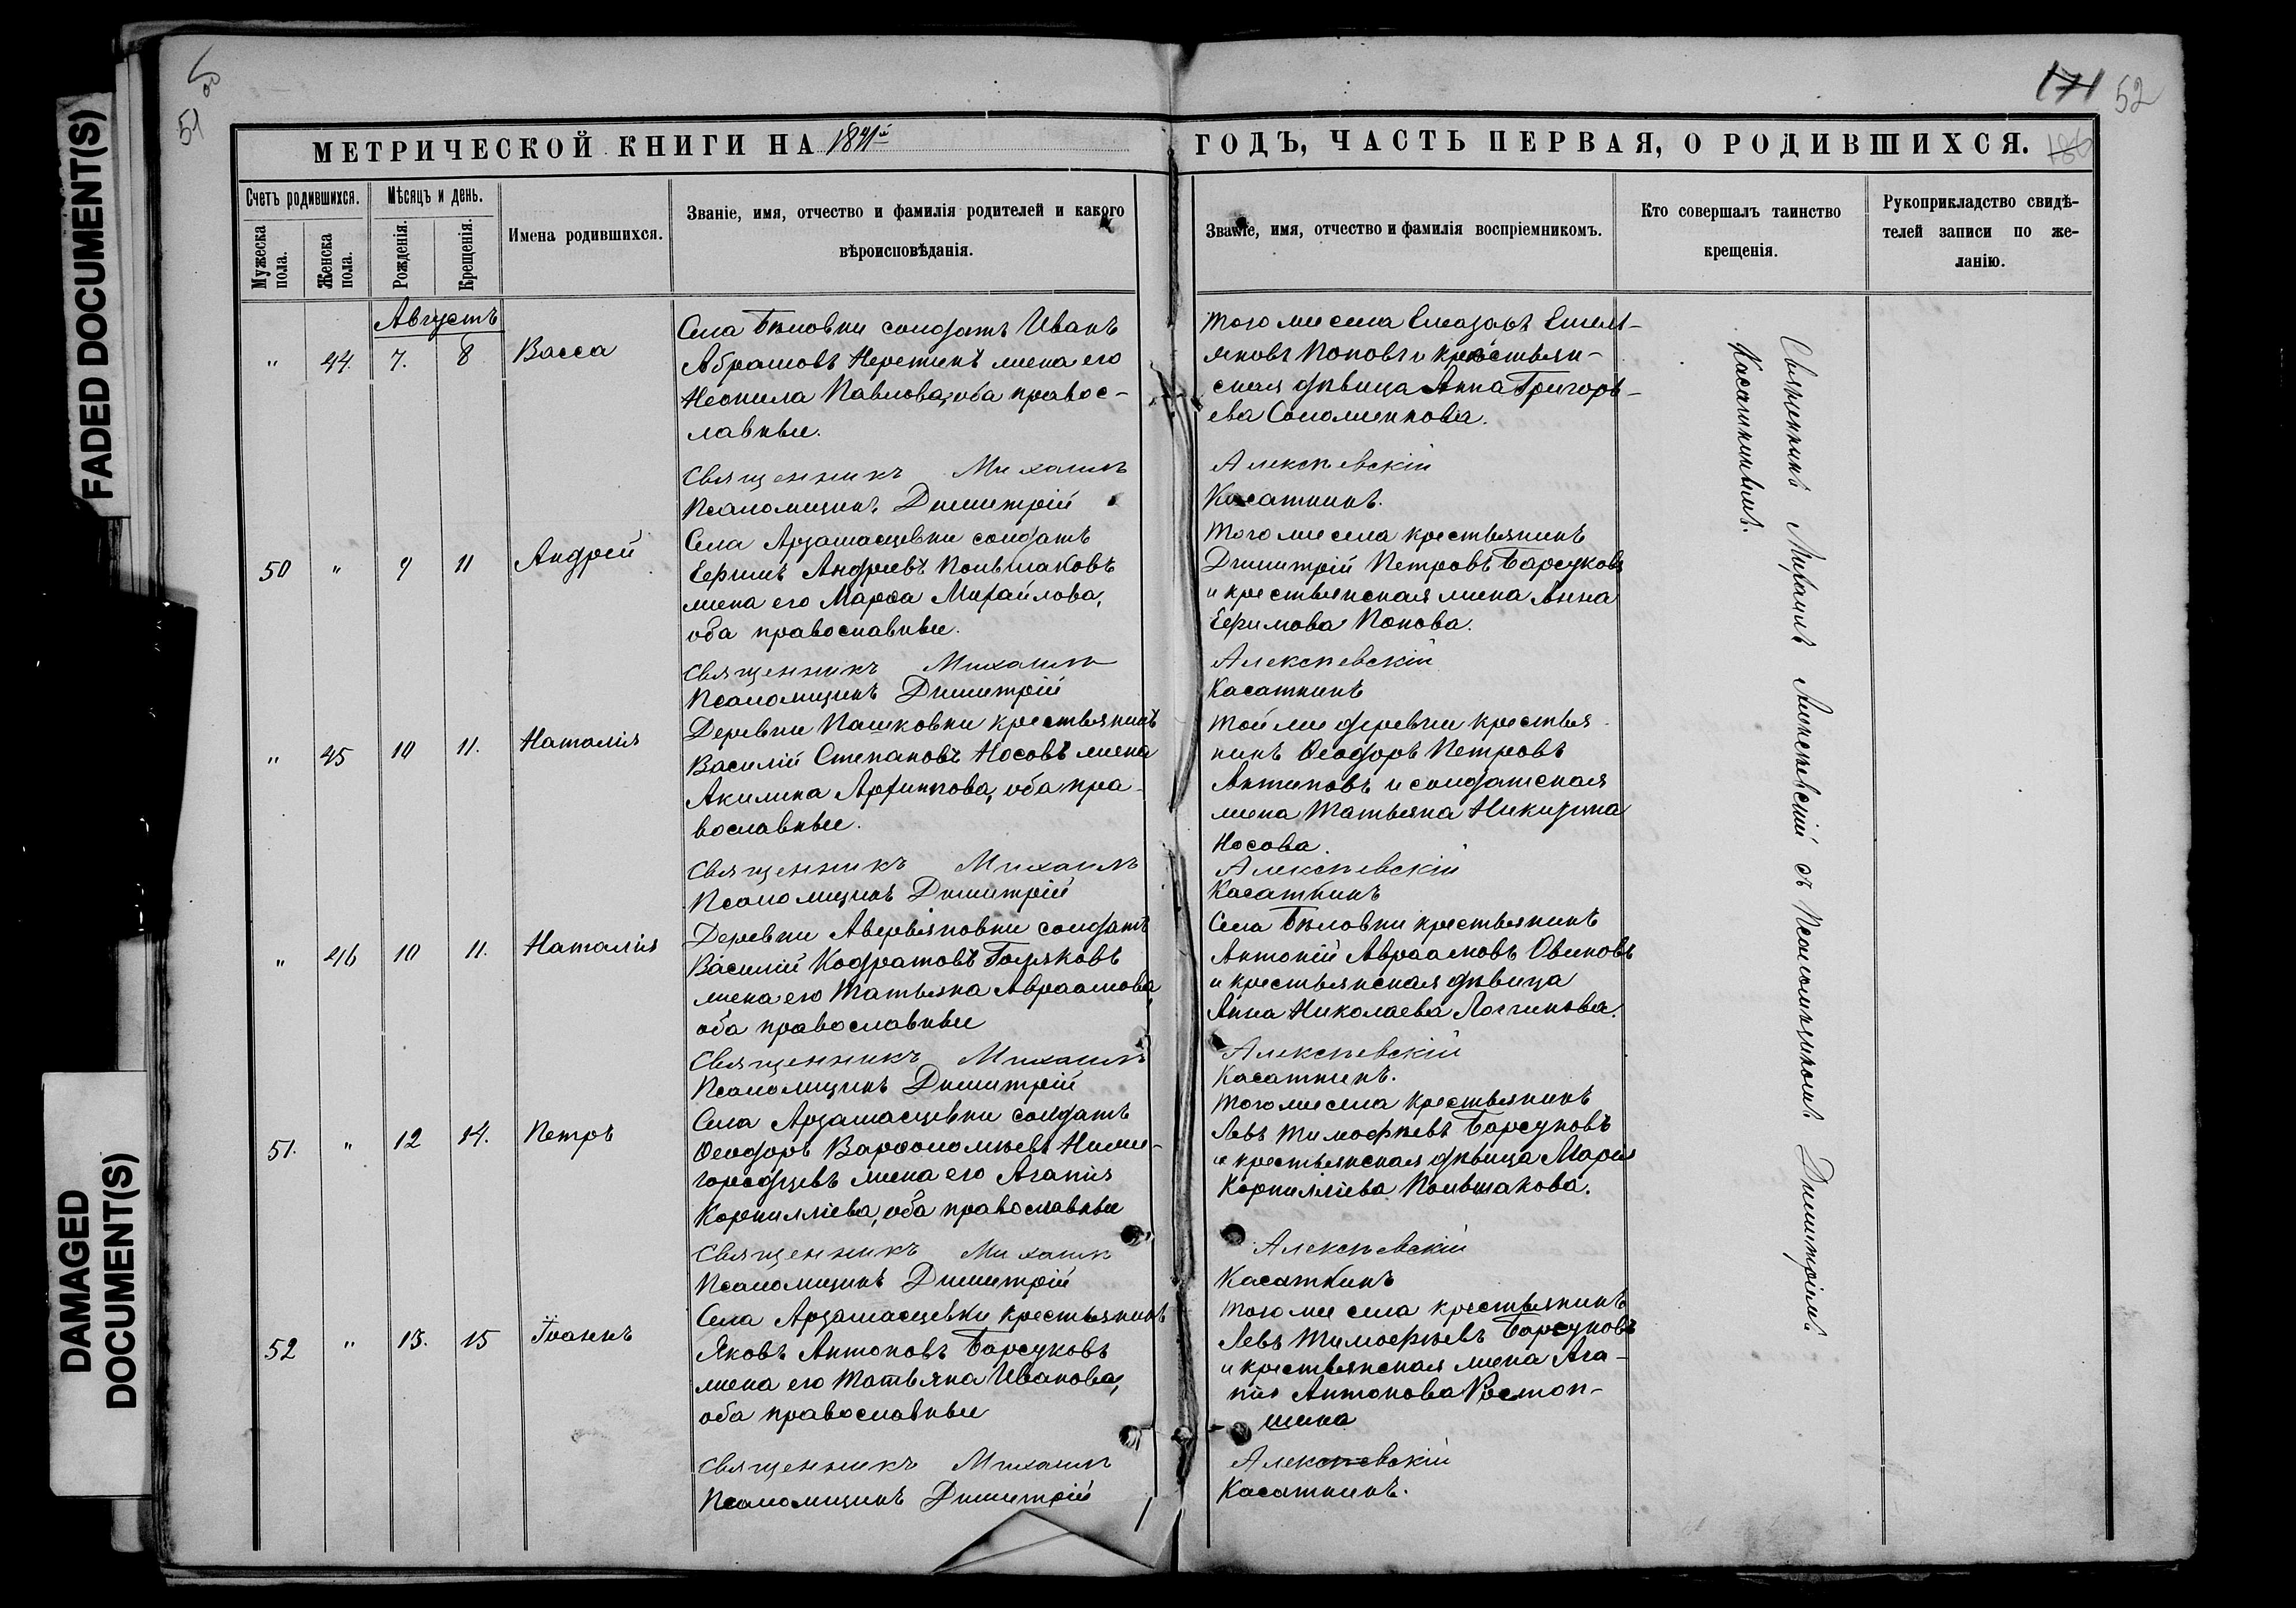 FADED DOCUMENT(S)
DAMAGED
DOCUMENT(S)
51
171 52
186
МЕТРИЧЕСКОЙ КНИГИ НА
ГОДЪ, ЧАСТЬ ПЕРВАЯ, О РОДИВШИХСЯ.
Счетъ родившихся.
Мужеска
пола.
Женска
пола.
Мѣсяцъ и день.
Рожденія.
Крещенія.
Имена родившихся.
Званіе, имя, отчество и фамилія родителей и какого
вѣроисповѣданія.
Званіе, имя, отчество и фамилія воспріемниковъ.
Кто совершалъ таинство
крещенія.
Рукоприкладство свидѣ-
телей записи по же-
ланію.
Августъ
" 44. 7. 8 Васса
Села Бѣловки солдатъ Иванъ
Абрамовъ Неретинъ жена его
Неонила Павлова, оба правос-
лавные.
Того же села Елеазаръ Емель-
яновъ Поповъ и крестьян-
ская дѣвица Анна Григорь-
ева Соломенкова.
Священникъ Михаилъ
Алексѣевскій
Псаломщикъ Димитрій
Касаткинъ.
50 " 9 11 Андрей
Села Арзамасцевки солдатъ
Ефимъ Андреевъ Польшаковъ
жена его Марѳа Михайлова,
оба православные.
Того же села крестьянинъ
Димитрій Петровъ Барсуковъ
и крестьянская жена Анна
Ефимова Попова.
Священникъ Михаилъ
Алексѣевскій
Псаломщикъ Димитрій
Касаткинъ
" 45 10 11. Наталія
Деревни Пашковки крестьянинъ
Василій Степановъ Носовъ жена
Акилина оба пра-
вославные.
Той же деревни крестья
нинъ Ѳеодоръ Петровъ
Антиповъ и солдатская
жена Татьяна Никитина
Носова.
Священникъ Михаилъ
Алексѣевскій
Псаломщикъ Димитрій
Касаткинъ
" 46 10 11. Наталія
Деревни Аверьяновки солдатъ
Василій Кодратовъ
жена его Татьяна Авраамова
оба православные
Села Бѣловки крестьянинъ
Антоній Авраамовъ Овиновъ
и крестьянская дѣвица
Анна Николаева Логинова.
Священникъ Михаилъ
Алексѣевскій
Псаломщикъ Димитрій
Касаткинъ.
51. " 12 14. Петръ
Села Арзамасцевки солдатъ
Ѳеодоръ Варѳоломѣевъ Ниже-
городцевъ жена его Агапія
Корниліева, оба православные
Того же села крестьянинъ
Левъ Тимофѣевъ Барсуковъ
и крестьянская дѣвица Марія
Корниліева Польшакова.
Священникъ Михаилъ
Алексѣевскій
Псаломщикъ Димитрій
Касаткинъ
52 " 13. 15 Іоаннъ
Села Арзамасцевки крестьянинъ
Яковъ Антоновъ Барсуковъ
жена его Татьяна Иванова,
оба православные
Того же села крестьянинъ
Левъ Тимофѣевъ Барсуковъ
и крестьянская жена Ага-
пія Антонова Растоп-
шина
Священникъ Михаилъ
Алексѣевскій
Псаломщикъ Димитрій
Касаткинъ.
Священникъ Михаилъ Алексѣевскій съ Псаломщикомъ Димитріемъ
Касаткинымъ.